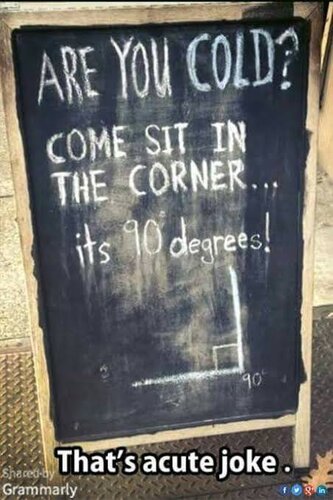 ARE YOU COLD?
COME SIT IN
THE CORNER...
its 90° degrees!
90°
That's acute joke.
Shared by
Grammarly